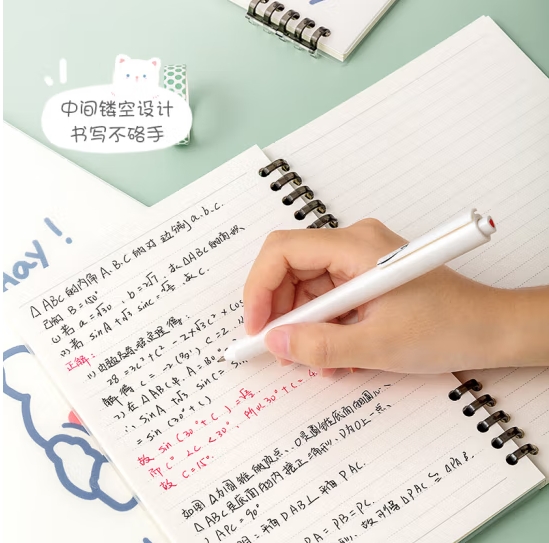 中间镂空设计
书写不硌手
Hay!
△ABC的内角A.B.C的对边分别a.b.c.
已知 B=150°
(1)若 a=√3c, b=2√7, 求△ABC的面积.
(2)若 sinA+√3 sinC=√2/2, 求C.
正解:
(1)由余弦定理得:
28=3c²+c²-2×√3c²×cos
解得 c=-2(舍), c=2.
(2)在△ABC中. A=180
∴ sinA+√3 sinC=sin
=sin(30°+C)
故 sin(30°+C)=√2/2.
即 0°<C<30°. 所以30°+C=4
故 C=15°.
如图 D为圆锥的顶点, O是圆锥底面的圆心,
△ABC是底面的内接正三角形, P为DO上一点,
∠APC=90°
明:平面PAB⊥平面PAC.
PA=PB=PC.
△PAC≌△PAB